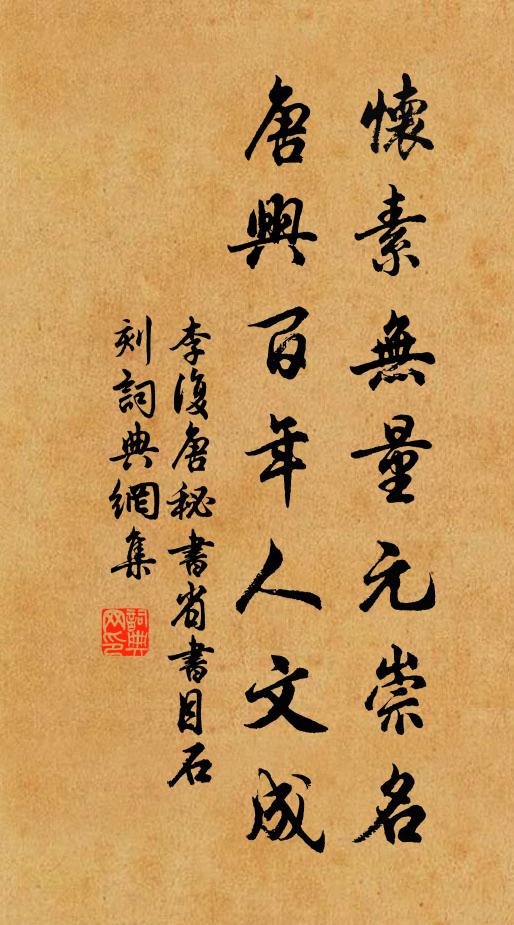 懷素無量元崇名
唐興百年人文成
李復唐秘書省書目石
刻詞典網集
詞典
网印